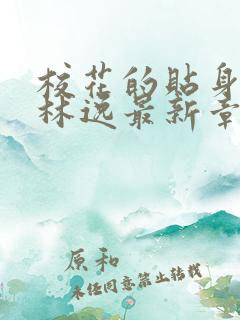 校花的贴身
林逸最新章
原和
未经同意禁止转载